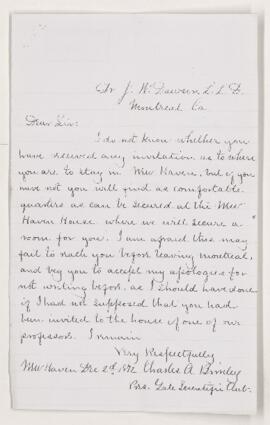 Dr J. W. Dawson, L.L.D.
Montreal Ca
Dear Sir:
I do not know whether you
have received any invitation as to where
you are to stay in New Haven, but if you
have not you will find as comfortable
quarters as can be secured at the "New
Haven House" where we will secure a
room for you. I am afraid this may
fail to reach you before leaving Montreal,
and beg you to accept my apologies for
not writing before, as I should have done
if I had not supposed that you had
been invited to the house of one of our
professors. I remain
Very Respectfully,
New Haven Dec 2d 1872 Charles A.
Pres. Yale Scientific Club.